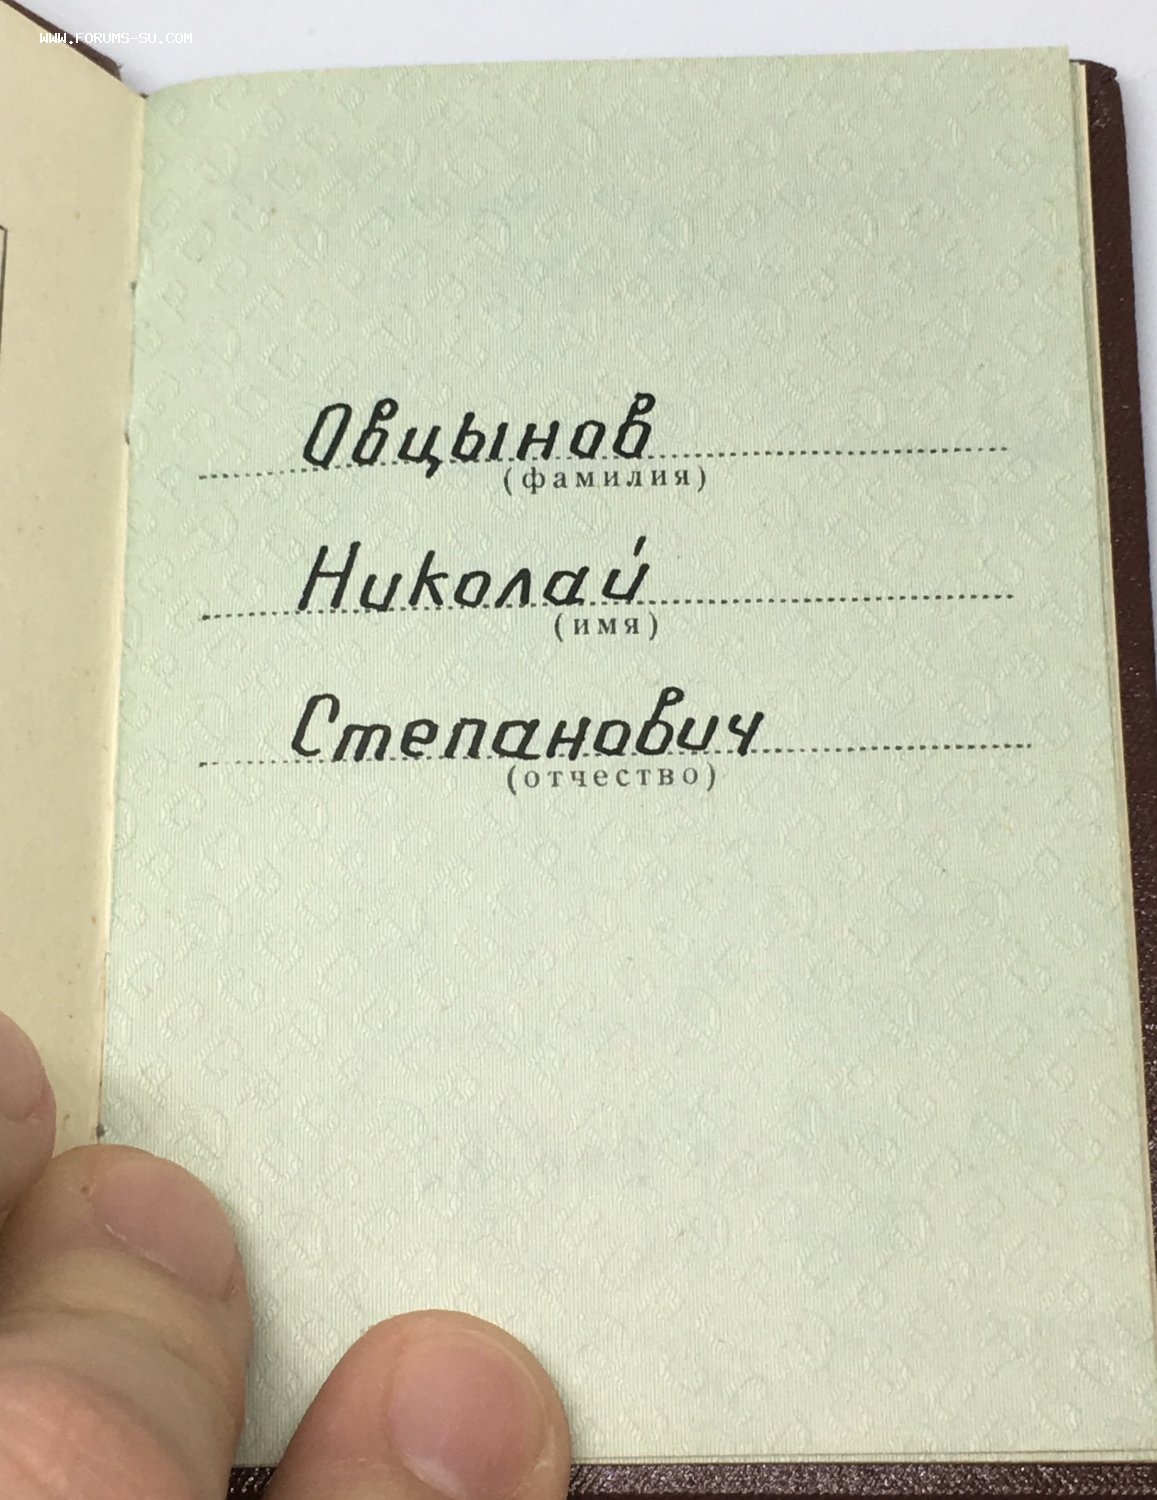 WWW.FORUMS-SU.COM
Овцынов
(фамилия)
Николай
(имя)
Степанович
(отчество)